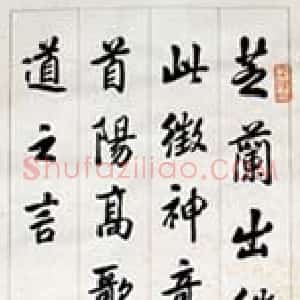 芝蘭出
此徵神音
首陽高歌
道之言
Shufaziliao.com